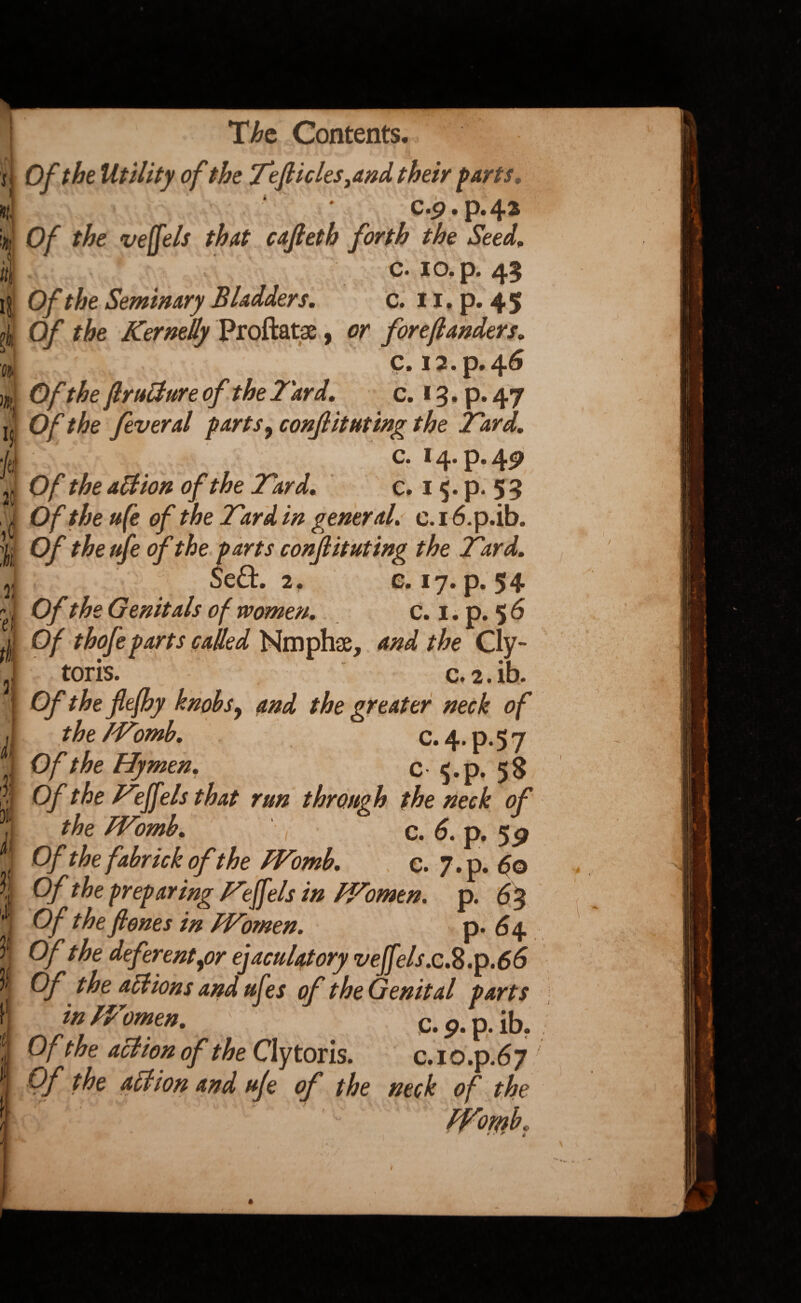 The Contents.
Of the Utility of the Teſticles, and their parts.
c.9. p.42
Of the veſſels that caſteth forth the Seed.
c. 10. p. 43
Of the Seminary Bladders. c. 11. p. 45
Of the Kernelly Proſtatæ, or foreſtanders.
c. 12. p. 46
Of the ſtructure of the Yard. c. 13. p. 47
Of the ſeveral parts, conſtituting the Yard.
c. 14. p. 49
Of the action of the Yard. c. 15. p. 53
Of the uſe of the Yard in general. c.16.p.ib.
Of the uſe of the parts conſtituting the Yard.
Sect. 2. c. 17. p. 54
Of the Genitals of women. c. 1. p. 56
Of thoſe parts called Nmphæ, and the Cly-
toris. c. 2. ib.
Of the fleſhy knobs, and the greater neck of
the Womb. c. 4. p.57
Of the Hymen. c. 5.p. 58
Of the Veſſels that run through the neck of
the Womb. c. 6. p. 59
Of the fabrick of the Womb. c. 7.p. 60
Of the preparing Veſſels in Women. p. 63
Of the ſtones in Women. p. 64
Of the deferent,or ejaculatory veſſels.c.8.p.66
Of the actions and uſes of the Genital parts
in Women. c. 9. p. ib.
Of the action of the Clytoris. c.10.p.67
Of the action and uſe of the neck of the
Womb.